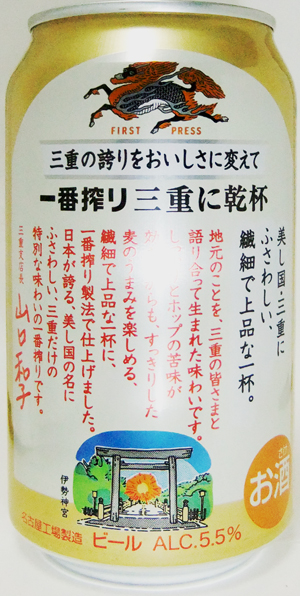 FIRST PRESS
三重の誇りをおいしさに変えて
一番搾り三重に乾杯
美し国・三重に
ふさわしい、
繊細で上品な一杯。
地元のことを、三重の皆さまと
語り合って生まれた味わいです。
し、 とホップの苦味が
好 らも、すっきりした
麦のうまみを楽しめる、
繊細で上品な一杯に、
一番搾り製法で仕上げました。
日本が誇る、美し国の名に
ふさわしい、三重だけの
特別な味わいの一番搾りです。
三重支店長 山口和子
伊勢神宮
お酒
名古屋工場製造 ビール ALC.5.5%